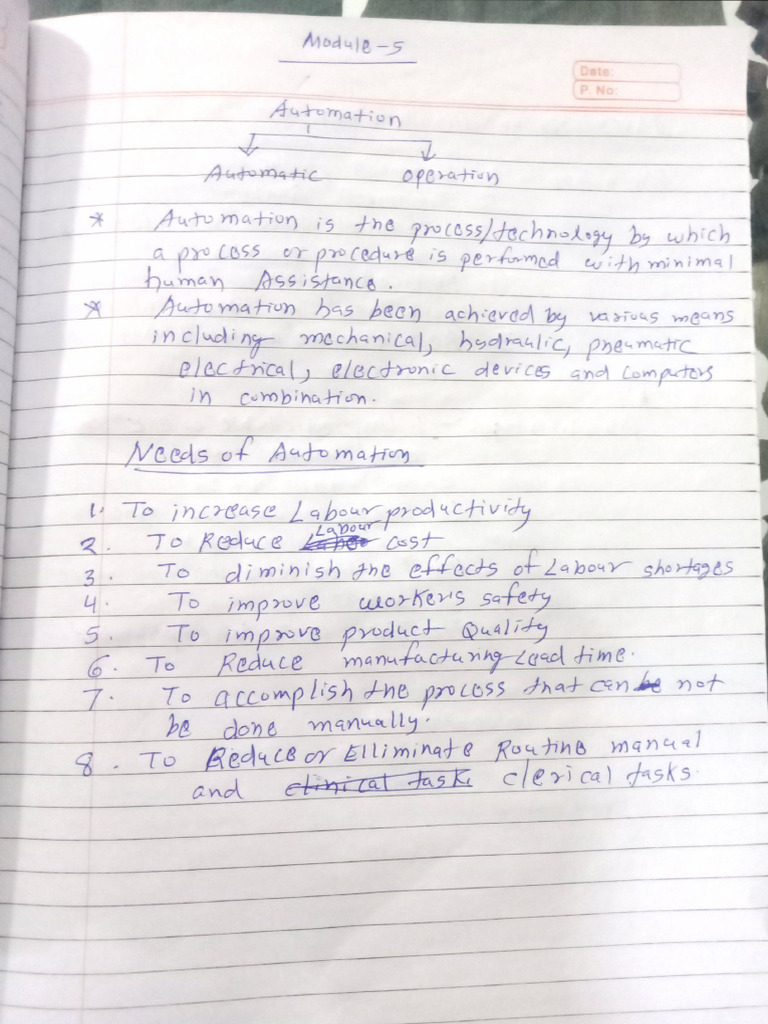 Module-5
Date:
P. No:
Automation
Automatic operation
* Automation is the process/technology by which
a process or procedure is performed with minimal
human Assistance.
* Automation has been achieved by various means
including mechanical, hydraulic, pneumatic
electrical, electronic devices and computers
in combination.
Needs of Automation
1. To increase Labour productivity
2. To Reduce Labour cost
3. To diminish the effects of Labour shortages
4. To improve workers safety
5. To improve product Quality
6. To Reduce manufacturing Lead time.
7. To accomplish the process that can be not
be done manually.
8. To Reduce or Elliminate Routine manual
and clinical task clerical tasks.